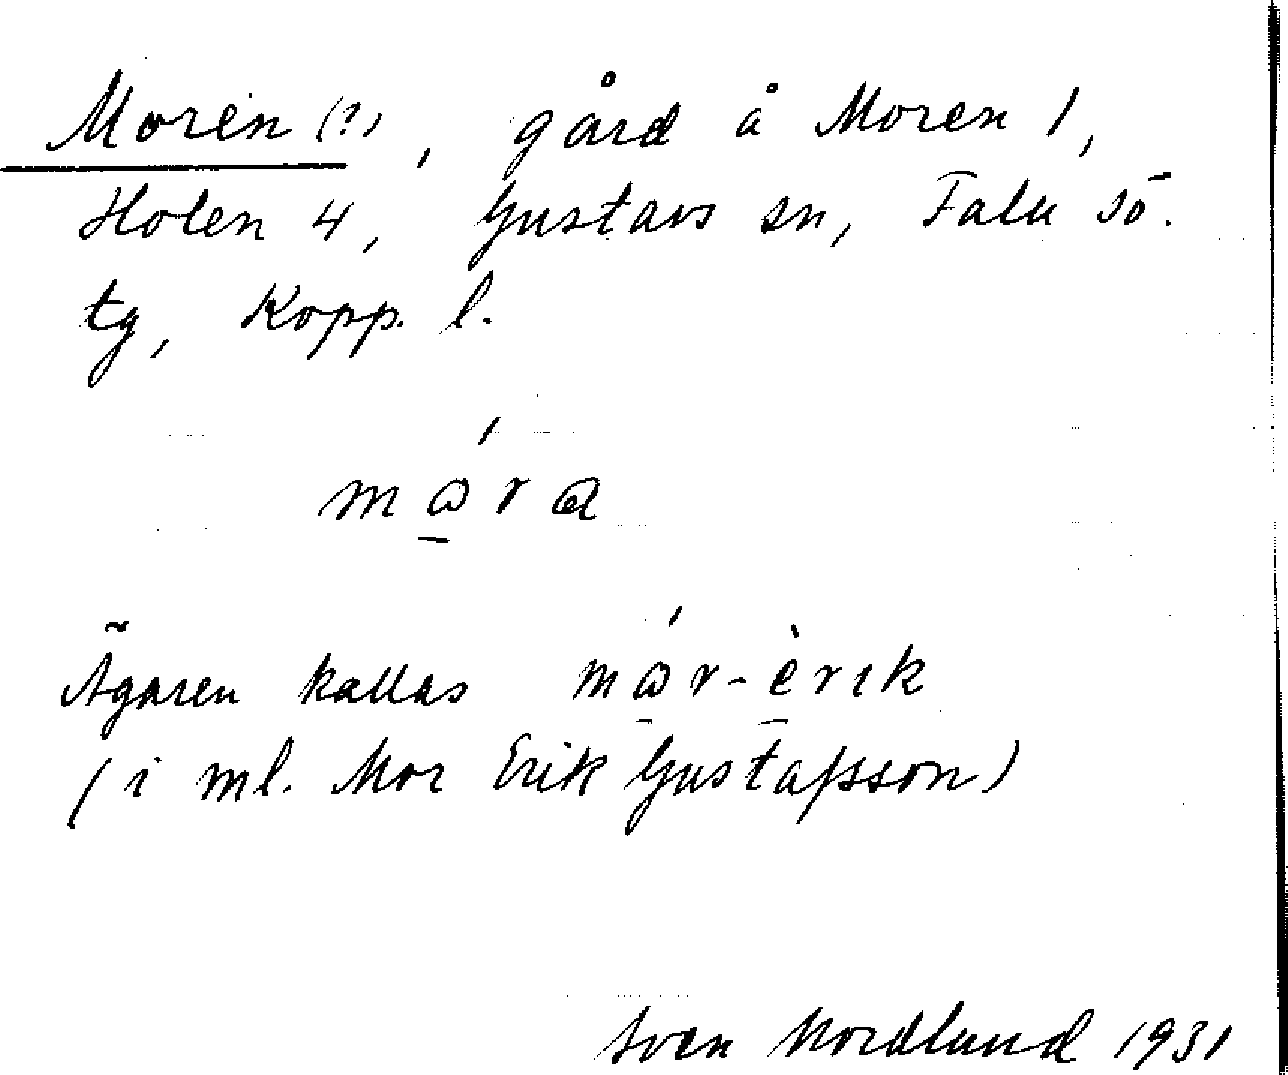 Morén (?), gård å Moren 1,
Holen 4, Gustavs sn, Falu sö.
tg, Kopp. l.
mɷ̱́ra
Ägaren kallas mɷ̱́r-ḕrɩk
(i ml. Mor Erik Gustafsson)
Sven Nordlund 1931